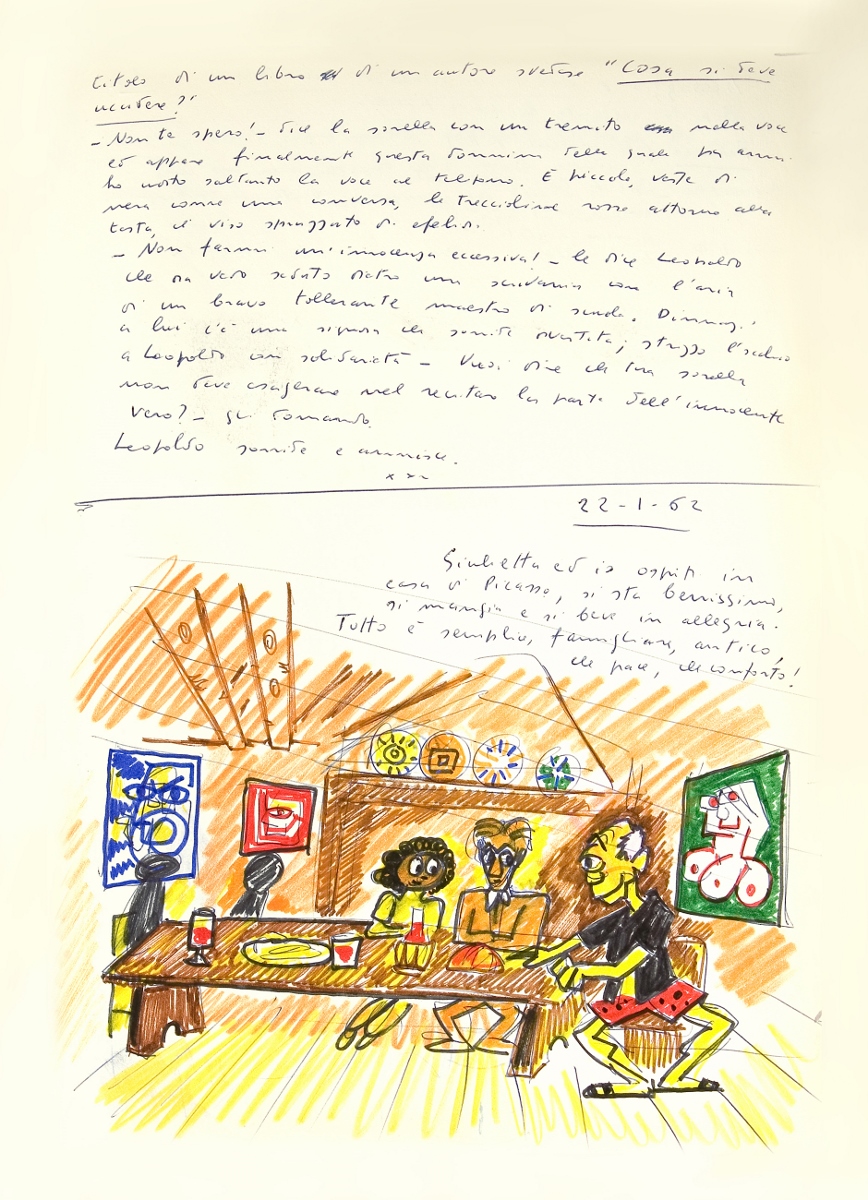 titolo di un libro di un autore svedese "Cosa si deve
uccidere?"
- Non te spero! - dice la sorella con un tremito nella voce
ed appare finalmente questa donnina della quale fin
ho udito soltanto la voce al telefono. È piccola, veste di
nera come una conversa, le treccioline rosse attorno alla
testa, il viso spruzzato di efelidi.
- Non farmi un'innocenza eccessiva! - le dice Leopoldo
che ora vedo seduto dietro una scrivania con l'aria
di un bravo tollerante maestro di scuola. Dinnanzi
a lui c'è una signora che sorride divertita; strizzo l'occhio
a Leopoldo con solidarietà - Vuoi dire che tua sorella
non deve esagerare nel recitare la parte dell'innocente
vero? - gli domando.
Leopoldo sorride e annuisce.
x x x
22-1-62
Giulietta ed io ospiti in
casa di Picasso, si sta benissimo,
si mangia e si beve in allegria.
Tutto è semplice, famigliare, antico,
che pace, che conforto!